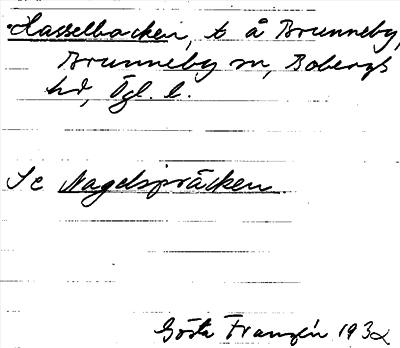 Hasselbacken, t å Brunneby,
Brunneby sn, Bobergs
hd, Ögl. l.
Se Nagelspräcken.
Gösta Franzén 1932